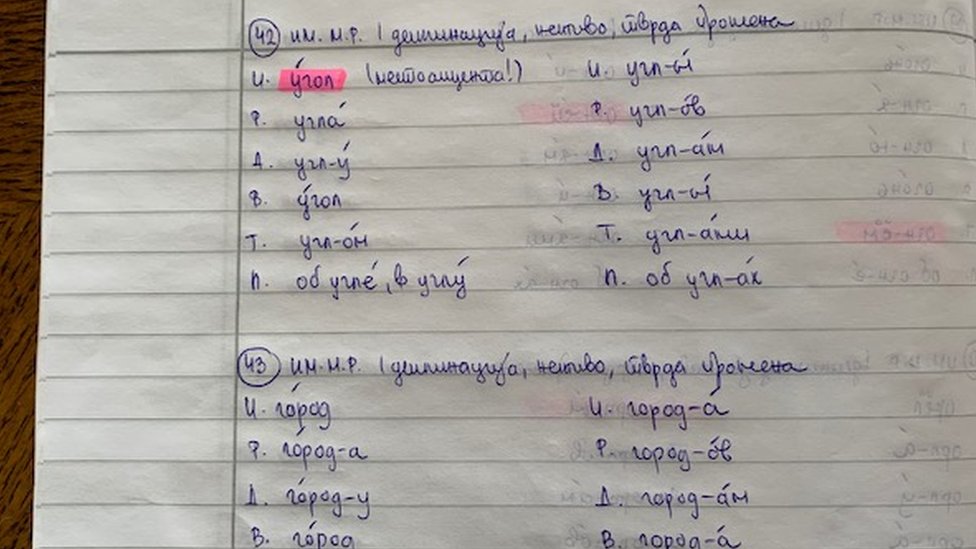 42 им. м.р. I деклинација, неживо, тврда промена
И. у́гол (непоакцента!) И. угл-ы́
Р. угла́ Р. угл-о́в
Д. угл-у́ Д. угл-а́м
В. у́гол В. угл-ы́
Т. угл-о́м Т. угл-а́ми
П. об угле́, в углу́ П. об угл-а́х
43 им. м.р. I деклинација, неживо, тврда промена
И. го́род И. город-а́
Р. го́род-а Р. город-о́в
Д. го́род-у Д. город-а́м
В. го́род В. город-а́